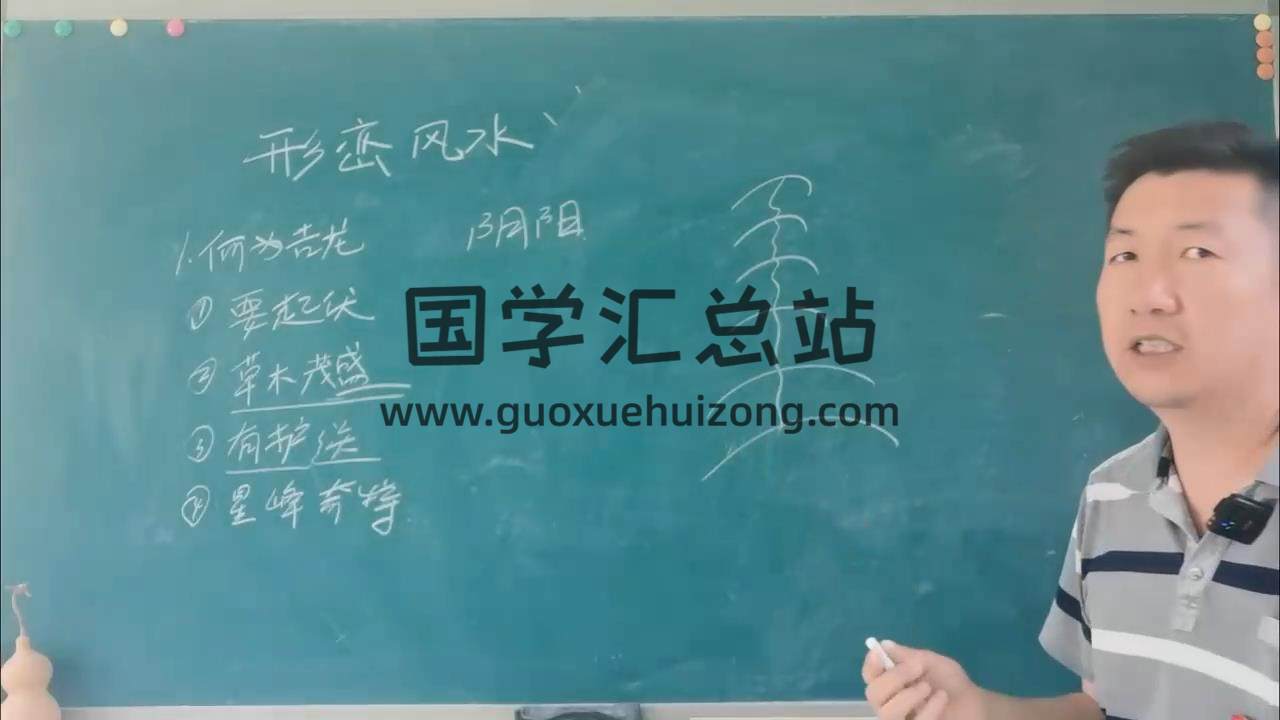 形峦风水
1.何为吉龙
阴阳
① 要起伏
② 草木茂盛
③ 有护送
④ 星峰奇特
国学汇总站
www.guoxuehuizong.com